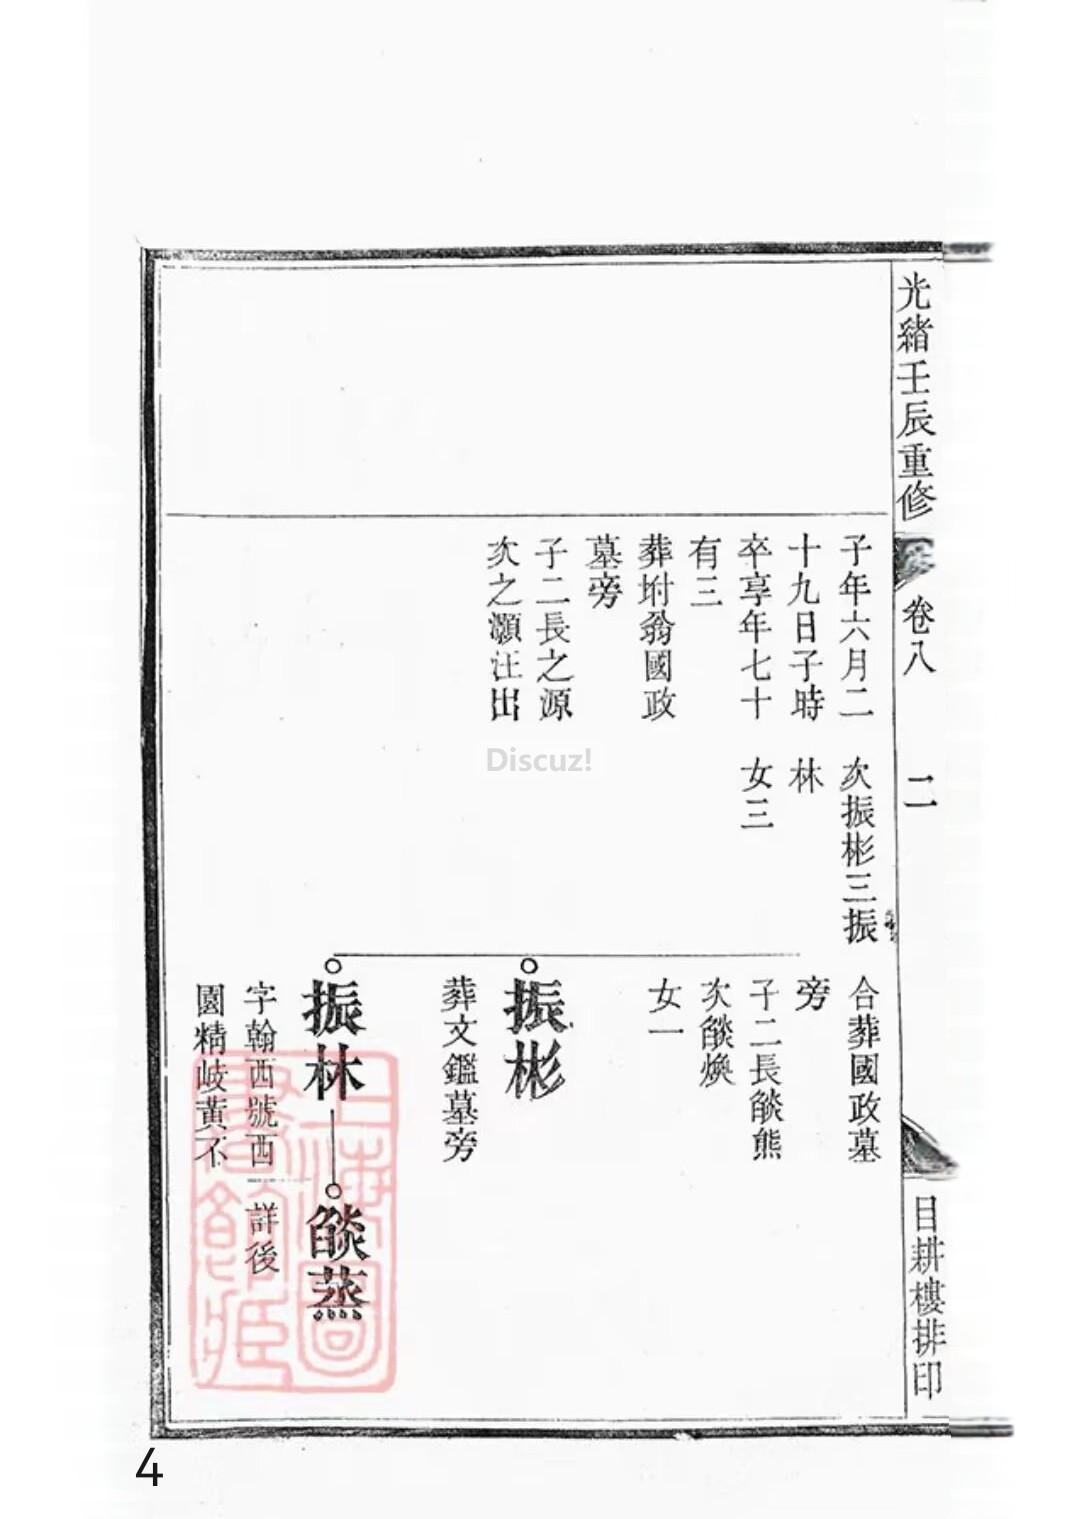 光緒壬辰重修
卷八
二
目耕樓排印
子年六月二
十九日子時
卒享年七十
有三
葬坿翁國政
墓旁
子二長之源
次之灝汪出
次振彬三振
林
女三
合葬國政墓
旁
子二長燄熊
次燄煥
女一
振彬
葬文鑑墓旁
振林
字翰西號西
園精岐黃不
燄蒸
詳後
上海圖
書館藏
Discuz!
4